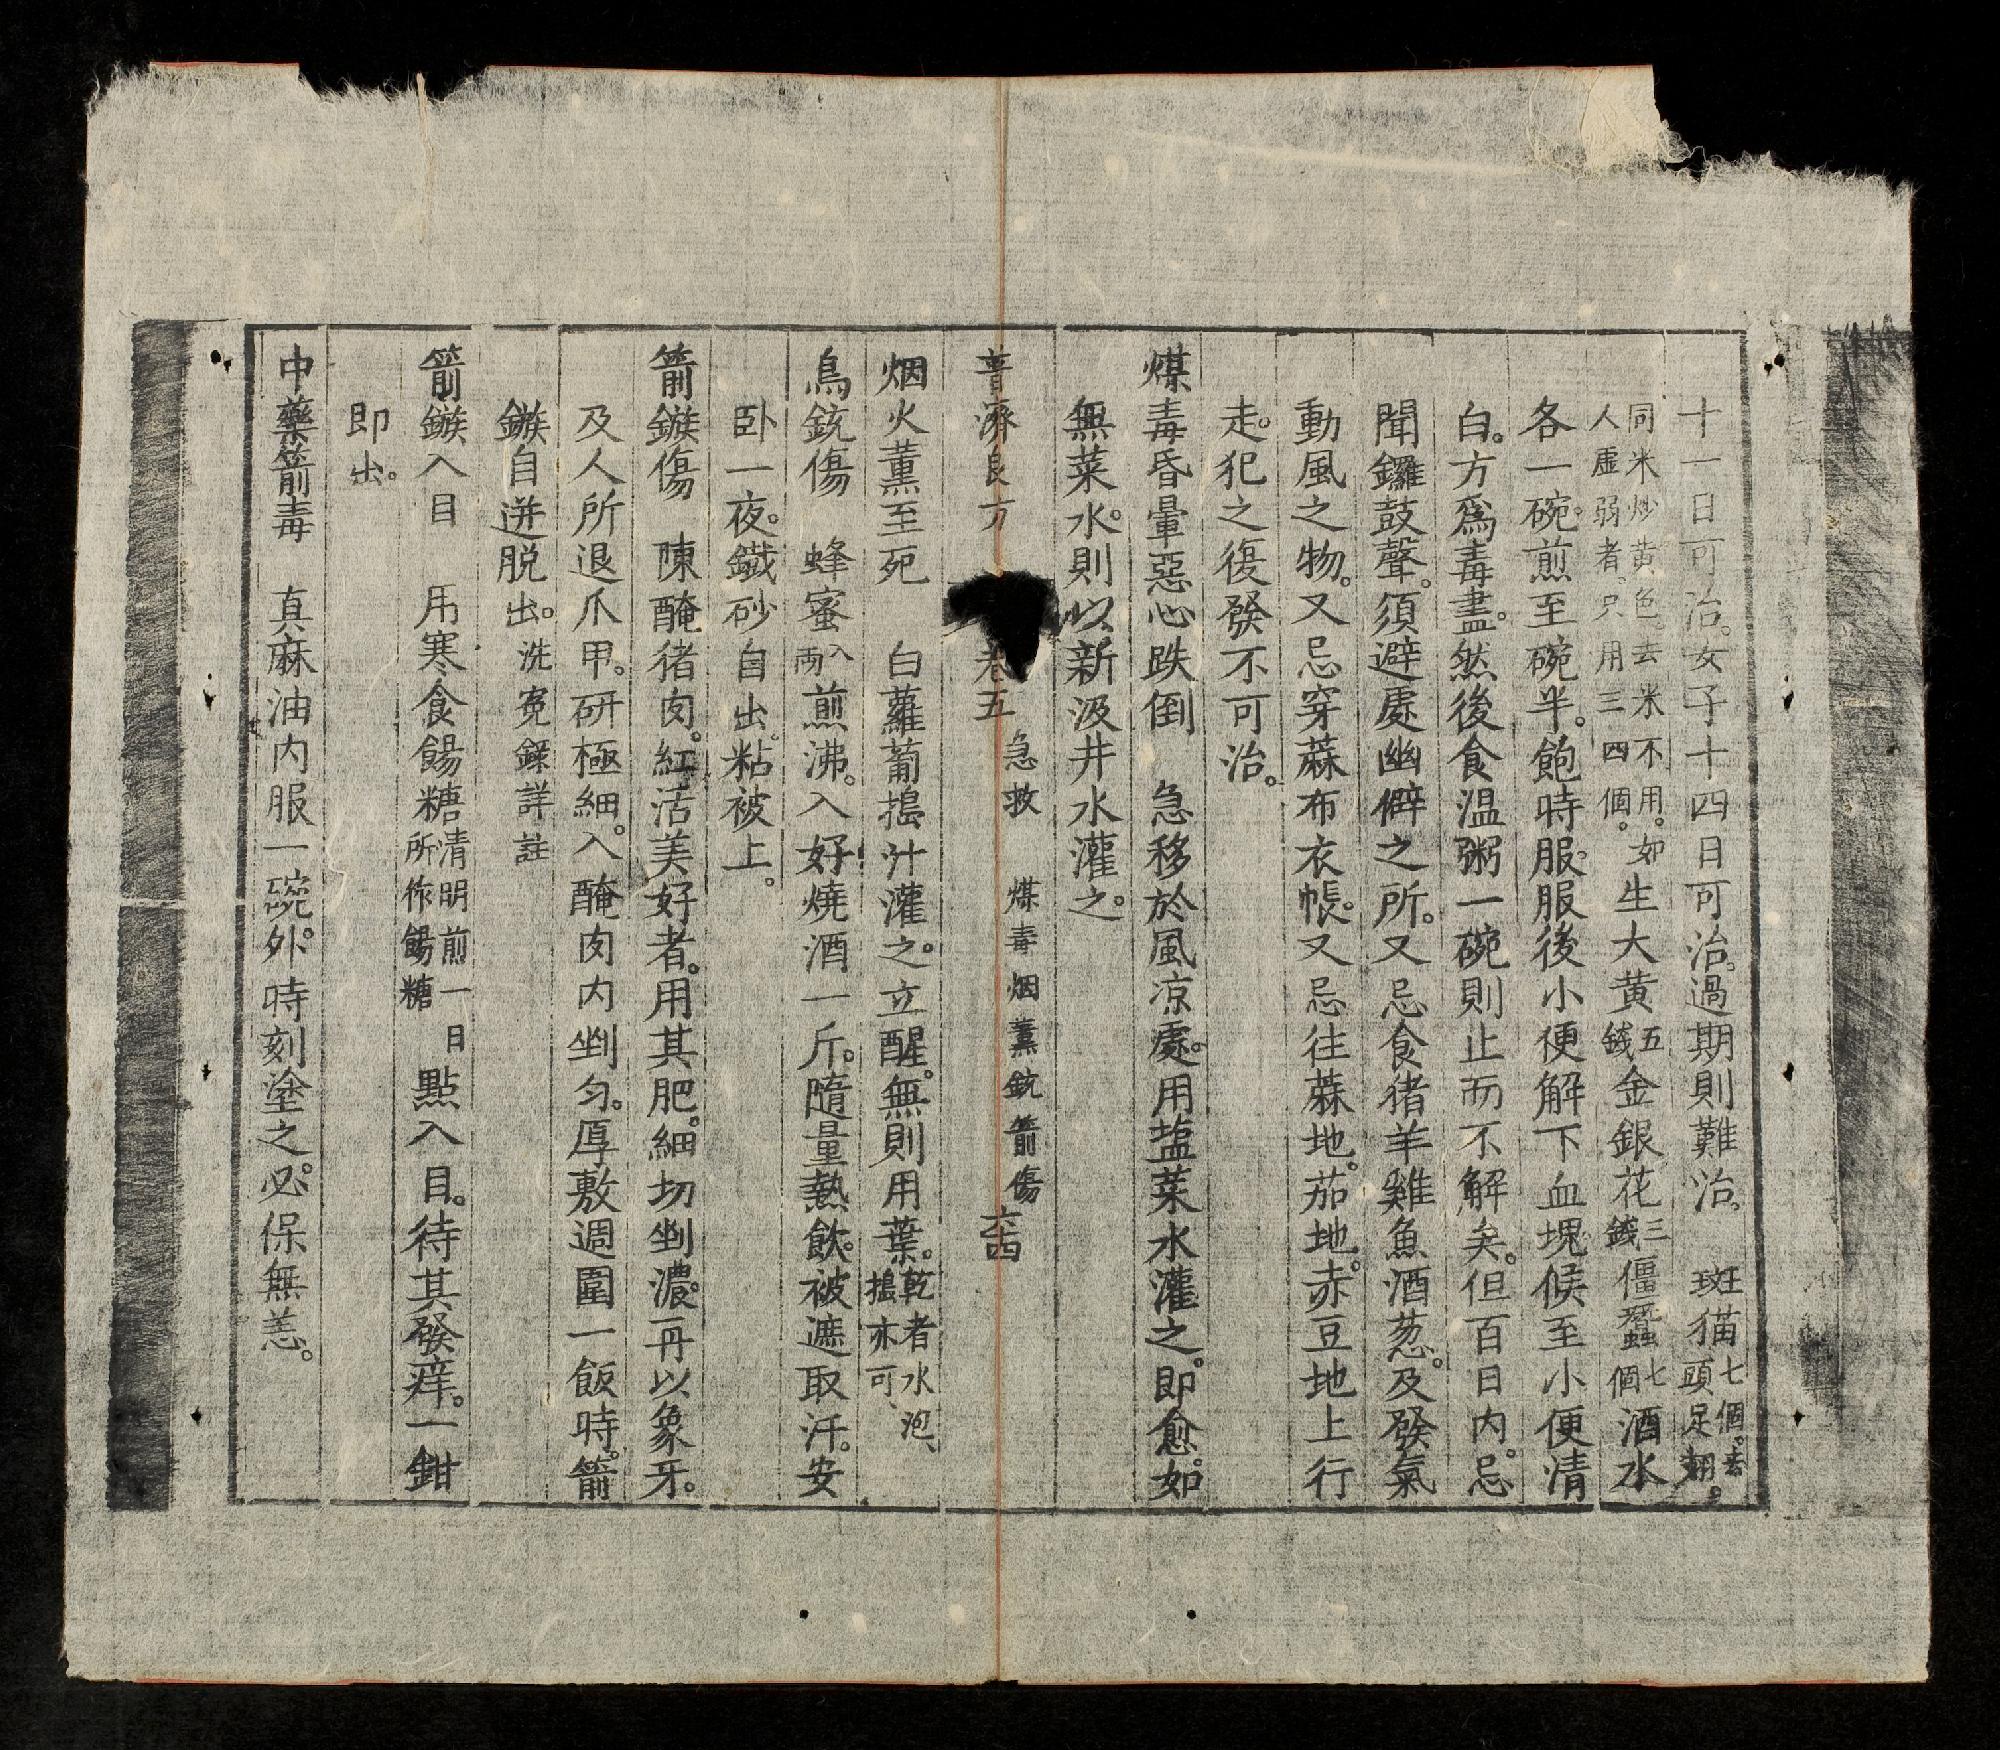 十一日可治。女子十四日可治。過期則難治。 斑猫七個。去頭足翅。
同米炒黄色。去米不用。如人虛弱者。只用三四個。生大黄五錢金銀花三錢僵蠶七個酒水
各一碗。煎至碗半。飽時服。服後小便解下血塊。候至小便清
白。方爲毒盡。然後食温粥一碗則止而不解矣。但百日内。忌
聞鑼鼓聲。須避處幽僻之所。又忌食猪羊雞魚酒葱。及發氣
動風之物。又忌穿蔴布衣帳。又忌往蔴地。茄地。赤豆地上行
走。犯之復發不可治。
煤毒昏暈惡心跌倒 急移於風凉處。用塩菜水灌之。即愈。如
無菜水。則以新汲井水灌之。
普濟良方 卷五 急救 煤毒烟薰銃箭傷 六四
烟火薰至死 白蘿蔔搗汁灌之。立醒。無則用葉。乾者水泡、搗亦可、
鳥銃傷 蜂蜜八兩煎沸。入好燒酒一斤。隨量熱飲。被遮取汗。安
卧一夜。鐵砂自出。粘被上。
箭鏃傷 陳醃猪肉。紅活美好者。用其肥。細切剉濃。再以象牙。
及人所退爪甲。研極細。入醃肉内剉匀。厚敷週圍一飯時。箭
鏃自迸脱出。洗寃錄詳註
箭鏃入目 用寒食餳糖清明前一日所作餳糖點入目。待其發痒。一鉗
即出。
中藥箭毒 真麻油内服一碗。外時刻塗之。必保無恙。